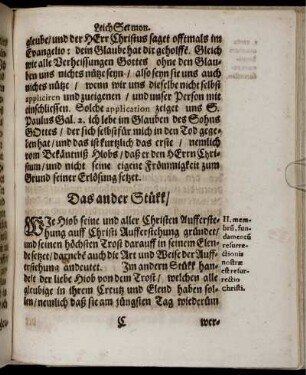 Leich Sermon.
gleube/ und der HErr Christus saget offtmals im
Evangelio: dein Glaube hat dir geholffē. Gleich
wie alle Verheissungen Gottes ohne den Glau-
ben uns nichts nütze seyn/ also seyn sie uns auch
nichts nütze/ wenn wir uns dieselbe nicht selbst
appliciren und zueigenen/ und unser Person mit
einschliessen. Solche application zeiget uns S.
Paulus Gal. 2. ich lebe im Glauben des Sohns
GOttes/ der sich selbst für mich in den Tod gege-
ben hat/ und das ist kurtzlich das erste/ nemlich
vom Bekäntnüß Hiobs/ daß er den HErrn Chri-
stum/ und nicht seine eigene Frömmigkeit zum
Grund seiner Erlösung setzet.
Das ander Stükk/
WJe Hiob seine und aller Christen Aufferste-
hung auff Christi Aufferstehung gründet/
und seinen höchsten Trost darauff in seinem Elen-
de setzet/ darnebē auch die Art und Weise der Auff-
erstehung andeutet. Im andern Stükk han-
delt der liebe Hiob von dem Trost/ welchen alle
gleubige in ihrem Creutz und Elend haben sol-
len/ nemlich daß sie am jüngsten Tag wiederüm
II. mem-
brū, fun-
damentū
resurre-
ctionis
nostræ
est resur-
rectio
christi.
C
wer-